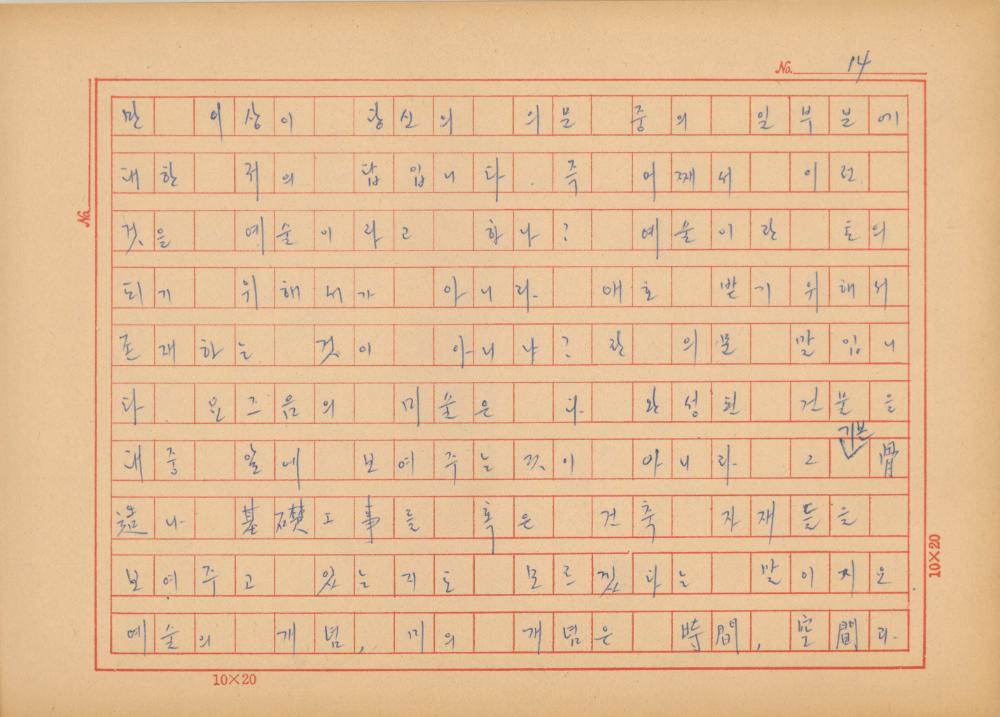 No. 14
만 이상이 당신의 의문 중의 일부분에
대한 저의 답입니다. 즉 어째서 이런
것을 예술이라고 하나? 예술이란 토의
되기 위해서가 아니라 애호 받기 위해서
존재하는 것이 아니냐? 란 의문 말입니
다. 요즈음의 미술은 다 완성된 건물을
대중 앞에 보여주는 것이 아니라 그 기본 骨
造나 基礎工事를 혹은 건축 자재들을
보여주고 있는지도 모르겠다는 말이지요.
예술의 개념, 미의 개념은 時間, 空間과
No.
10×20
10×20